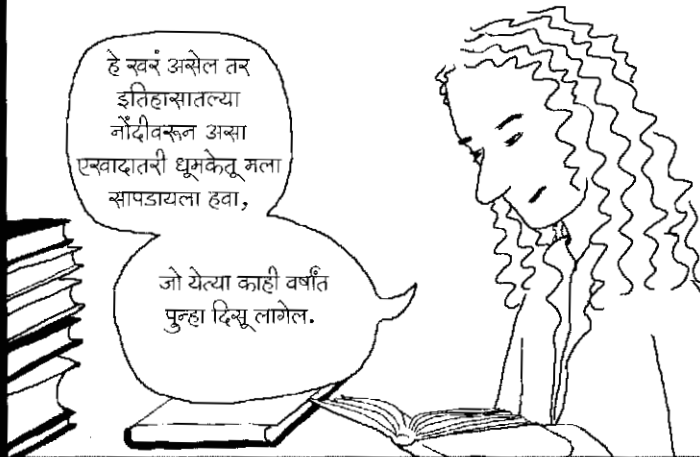 हे खरं असेल तर
इतिहासातल्या
नोंदीवरून असा
एखादातरी धूमकेतू मला
सापडायला हवा,
जो येत्या काही वर्षांत
पुन्हा दिसू लागेल.